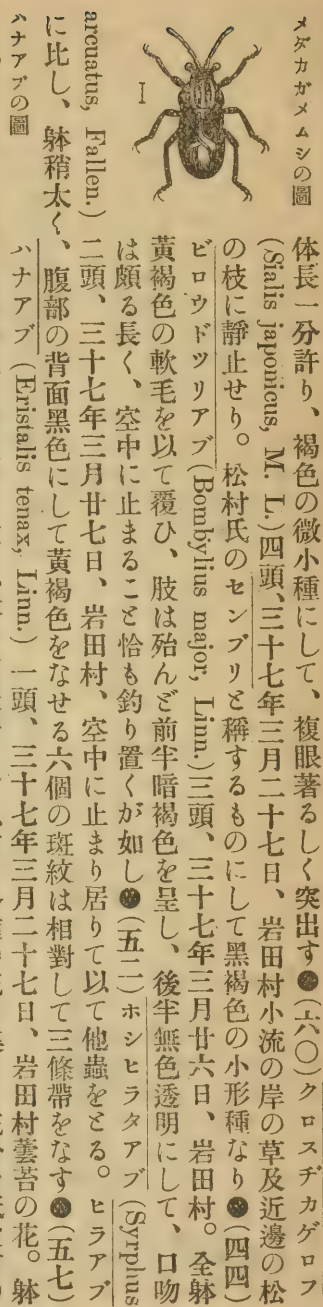 メダカガメムシの圖
体長一分許り、褐色の微小種にして、複眼著るしく突出す●(六〇)クロスヂカゲロフ
(Sialis japonicus, M. L.)四頭、三十七年三月二十七日、岩田村小流の岸の草及近邊の松
の枝に靜止せり。松村氏のセンブリと稱するものにして黑褐色の小形種なり●(四四)
ビロウドツリアブ(Bombylius major, Linn.)三頭、三十七年三月廿六日、岩田村。全躰
黃褐色の軟毛を以て覆ひ、肢は殆んど前半暗褐色を呈し、後半無色透明にして、口吻
は頗る長く、空中に止まること恰も釣り置くが如し●(五二)ホシヒラタアブ(Syrphus
arcuatus, Fallen.)二頭、三十七年三月廿七日、岩田村、空中に止まり居りて以て他蟲をとる。ヒラアブ
に比し、躰稍太く、腹部の背面黑色にして黃褐色をなせる六個の斑紋は相對して三條帶をなす●(五七)
ハナアブの圖
ハナアブ(Eristalis tenax, Linn.)一頭、三十七年三月二十七日、岩田村蕓苔の花。躰